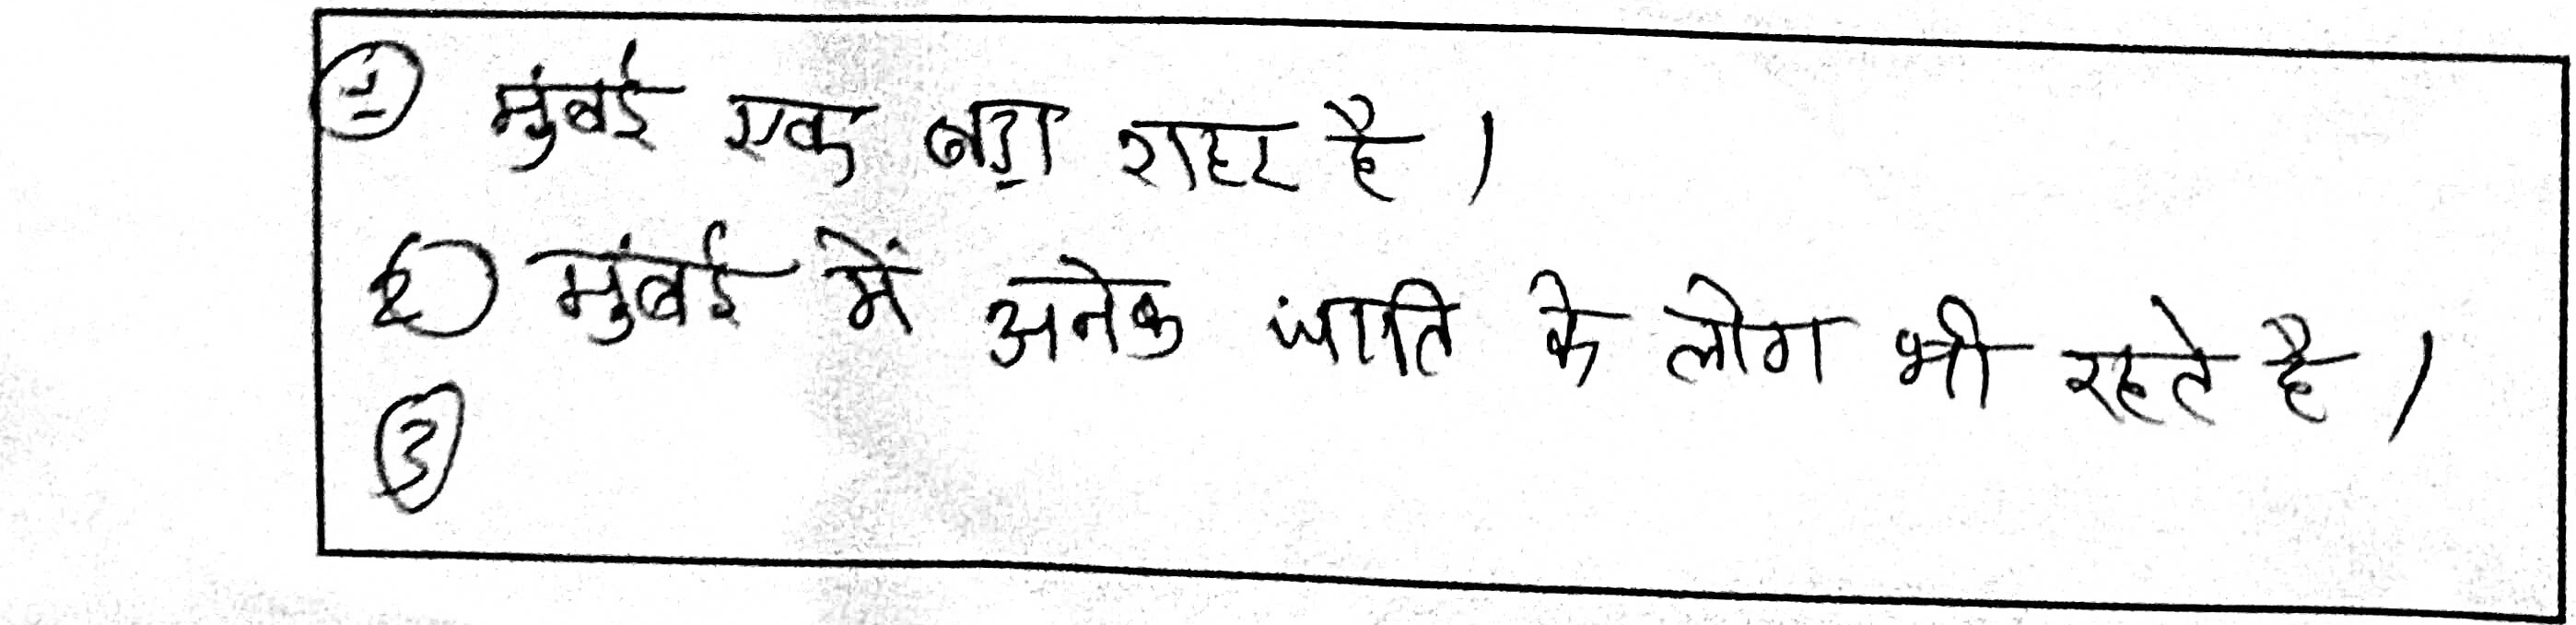 १ मुंबई एक बड़ा शहर है।
२) मुंबई में अनेक जाति के लोग भी रहते है।
३